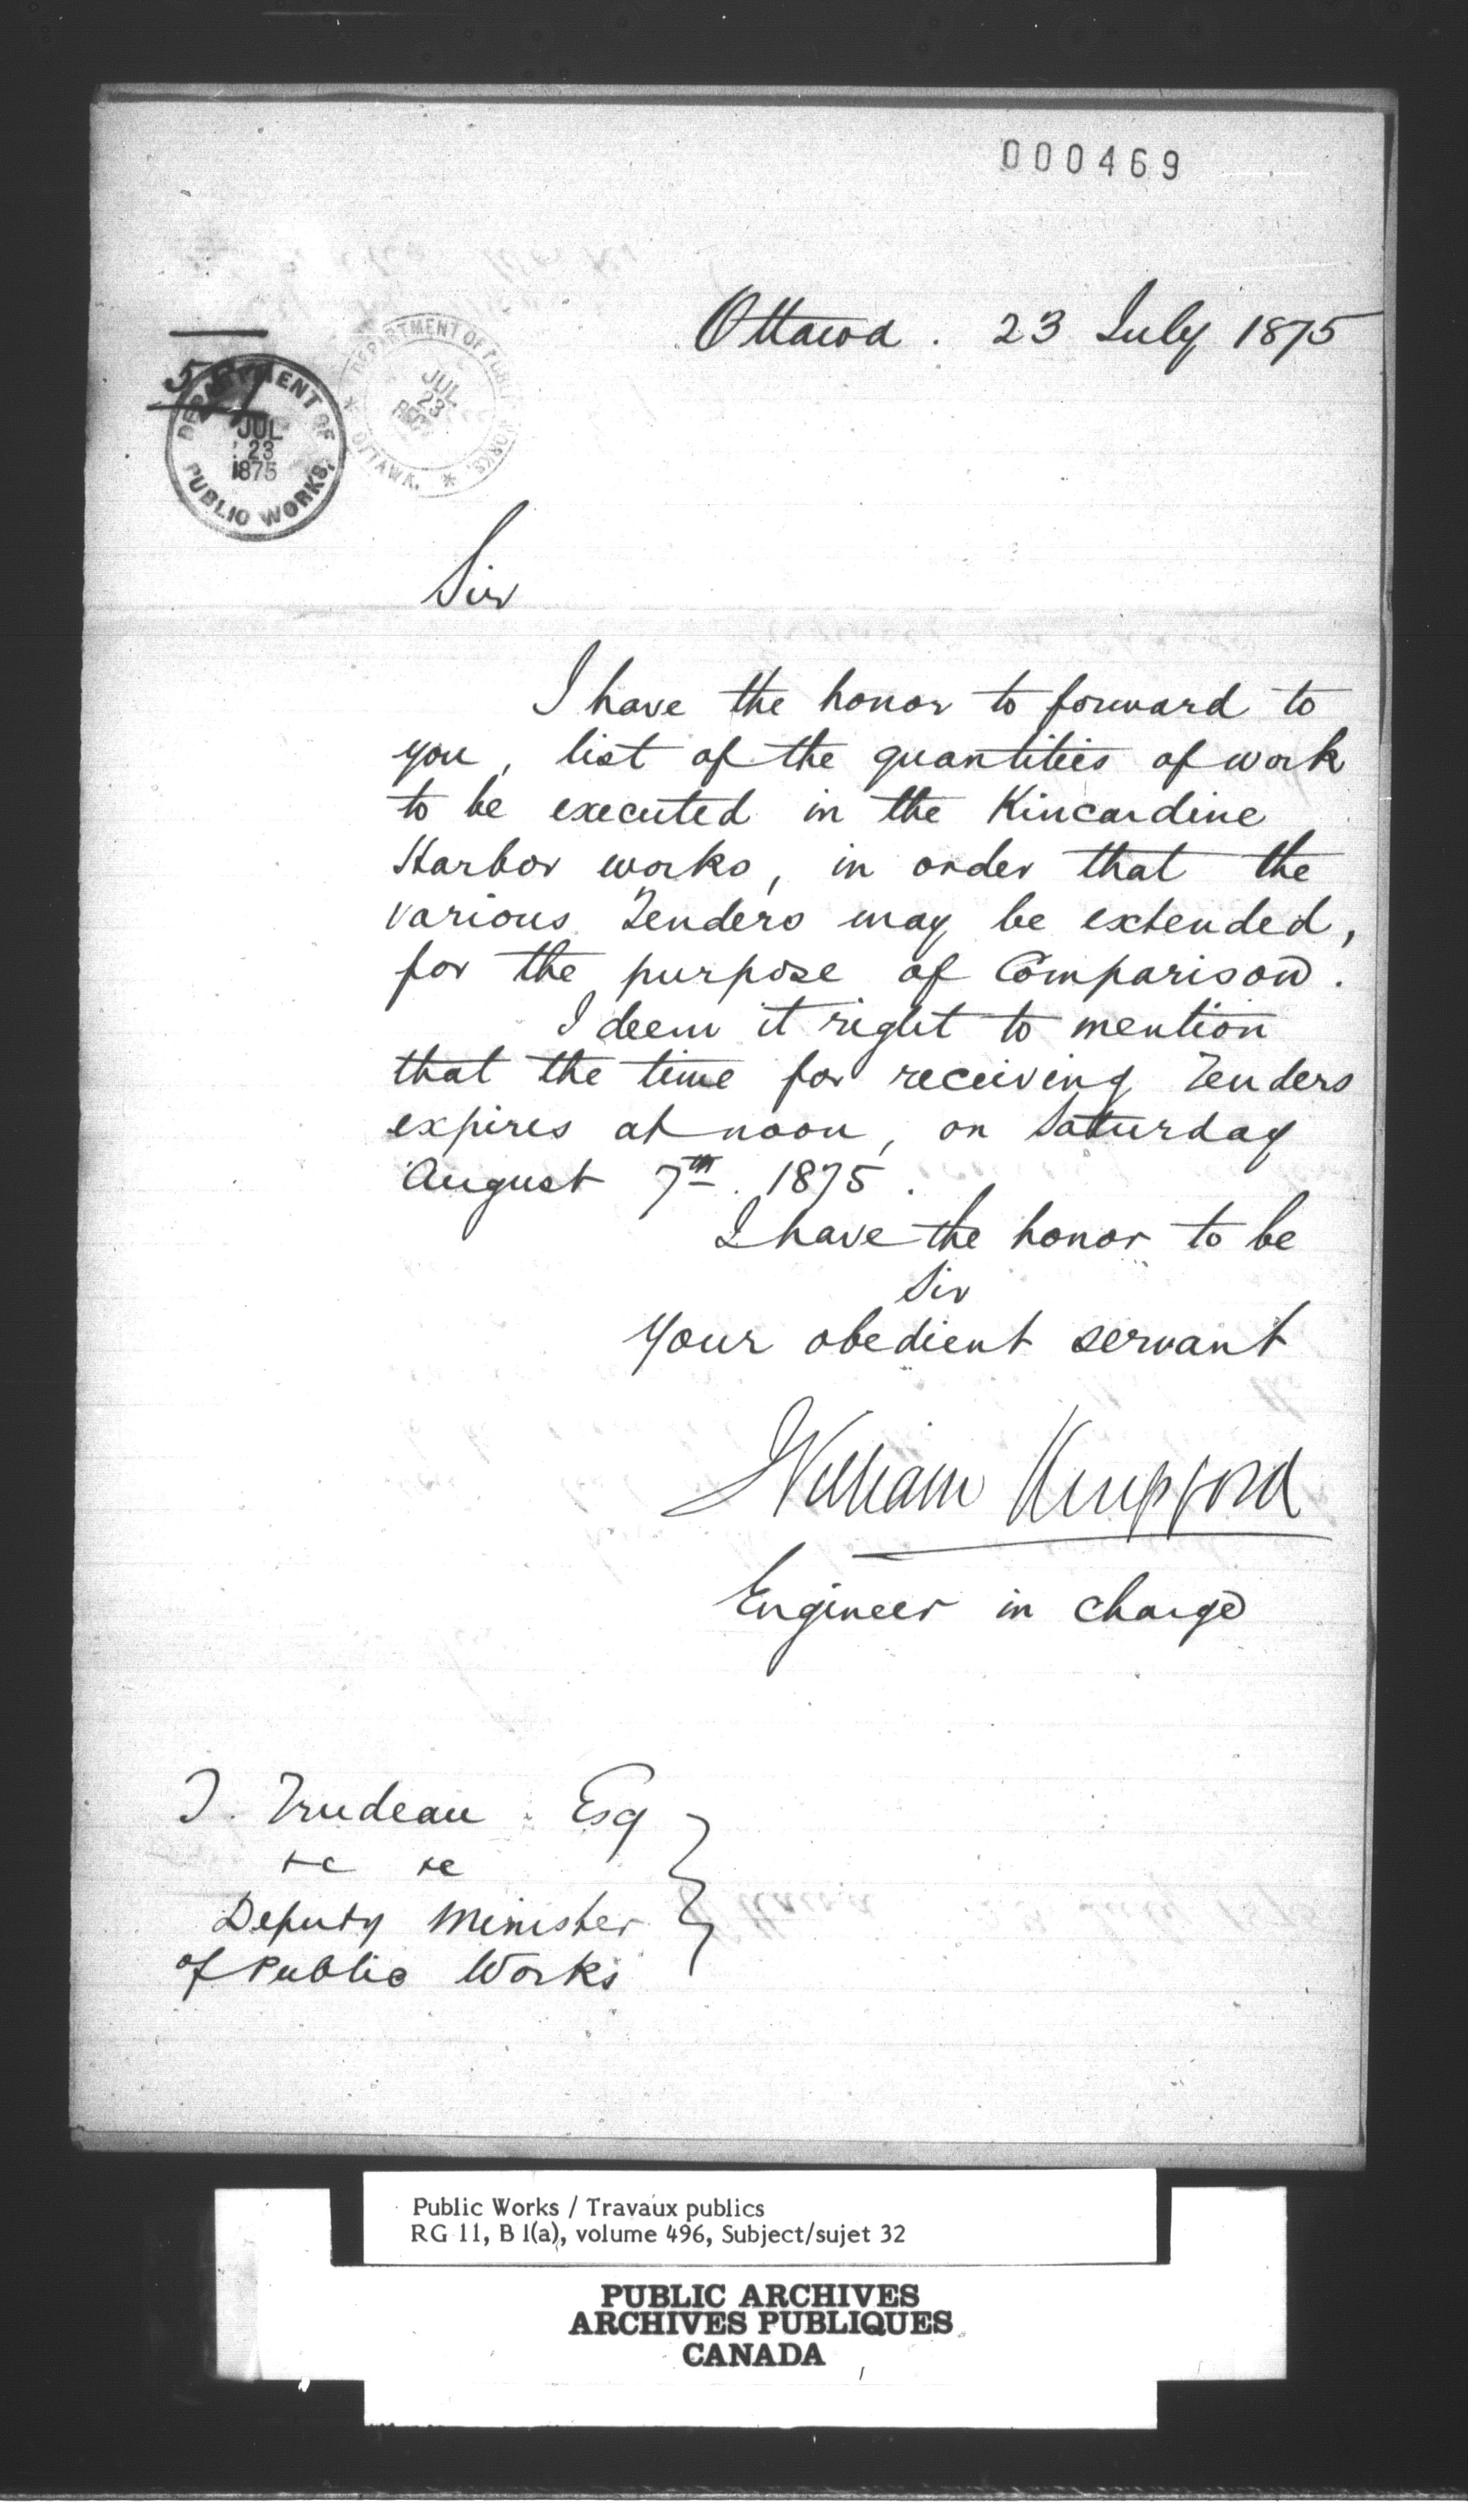 000469
Ottawa. 23 July 1875
DEPARTMENT OF PUBLIC WORKS.
JUL
23
1875
DEPARTMENT OF PUBLIC WORKS.
* OTTAWA. *
JUL
23
RECD
Sir
I have the honor to forward to
you, list of the quantities of work
to be executed in the Kincardine
Harbor works, in order that the
various Tenders may be extended,
for the purpose of Comparison.
I deem it right to mention
that the time for receiving Tenders
expires at noon, on Saturday
August 7th. 1875.
I have the honor to be
Sir
Your obedient servant
William Kingsford
Engineer in charge
T. Trudeau Esq
&c &c
Deputy Minister
of Public Works
Public Works / Travaux publics
RG 11, B 1(a), volume 496, Subject/sujet 32
PUBLIC ARCHIVES
ARCHIVES PUBLIQUES
CANADA